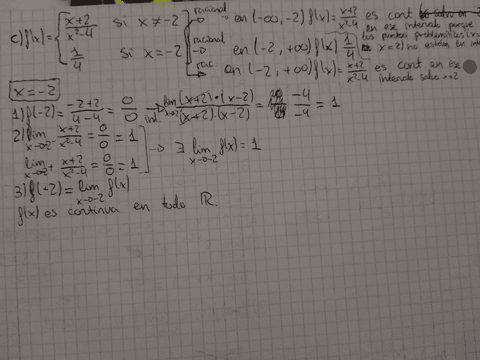 c) f(x) = { x+2 / x²-4 si x ≠ -2 racional → en (-∞, -2) f(x) = x+2 / x²-4 es cont
en ese intervalo porque
los puntos problemáticos (x=
1/4 si x = -2 racional → en (-2, +∞) f(x) 1/4 x=2) no están en
rac en (-2, +∞) f(x) = x+2 / x²-4 es cont. en ese
intervalo salvo x=2
x = -2
1) f(-2) = -2+2 / 4-4 = 0/0 → lim x→-2 (x+2)·(x-2) / (x+2)·(x-2) = -4/-4 = 1
2) lim x→-2⁻ x+2 / x²-4 = 0/0 = 1
lim x→-2⁺ x+2 / x²-4 = 0/0 = 1 → ∃ lim x→-2 f(x) = 1
3) f(-2) = lim x→-2 f(x)
f(x) es continua en todo ℝ.